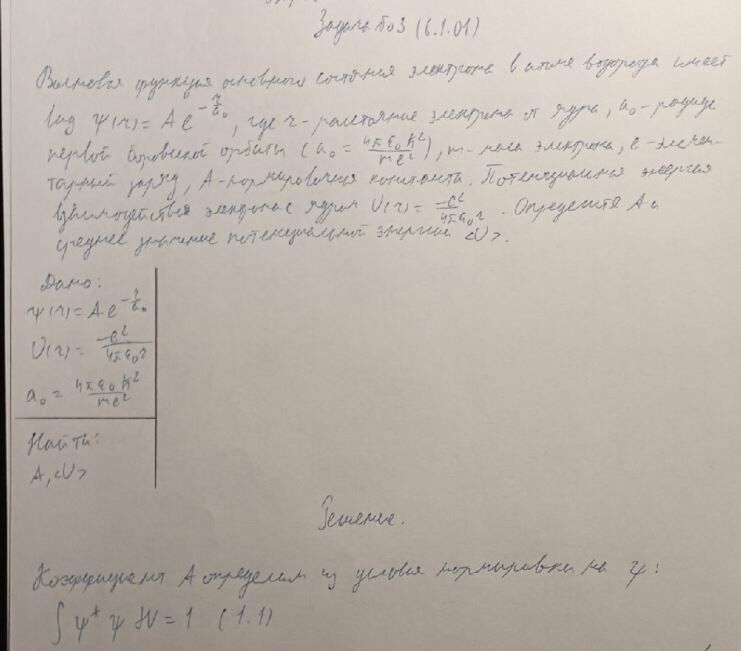 Задача №3 (6.1.01)
Волновая функция основного состояния электрона в атоме водорода имеет
вид ψ(r) = A e^{-r/a₀}, где r - расстояние электрона от ядра, a₀ - радиус
первой боровской орбиты (a₀ = 4πε₀ħ²/me²), m - масса электрона, e - элемен-
тарный заряд, A - нормировочная константа. Потенциальная энергия
взаимодействия электрона с ядром U(r) = -e²/4πε₀r. Определите A и
среднее значение потенциальной энергии <U>.
Дано:
ψ(r) = A e^{-r/a₀}
U(r) = -e²/4πε₀r
a₀ = 4πε₀ħ²/me²
Найти:
A, <U>
Решение.
Коэффициент A определим из условия нормировки на ψ:
∫ ψ* ψ dV = 1 (1.1)